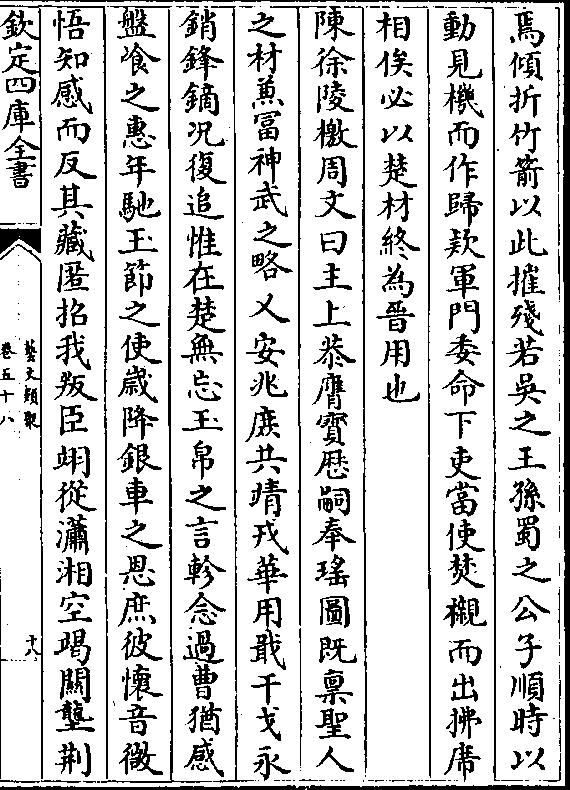 焉傾折竹箭以此摧殘若吳之王孫蜀之公子順時以
動見機而作歸款軍門委命下吏當使焚櫬而出拂席
相俟必以楚材終為晉用也
陳徐陵檄周文曰主上恭膺寶厯嗣奉瑤圖既稟聖人
之材兼冨神武之略乂安兆庶共靖戎華用戢干戈永
銷鋒鏑况復追惟在楚無忘玉帛之言軫念過曹猶感
盤飧之惠年馳玉節之使歲降銀車之恩庶彼懷音微
悟知感而反其藏匿招我叛臣翊從瀟湘空竭關隴荆
欽定四庫全書
藝文類聚
卷五十八
十八